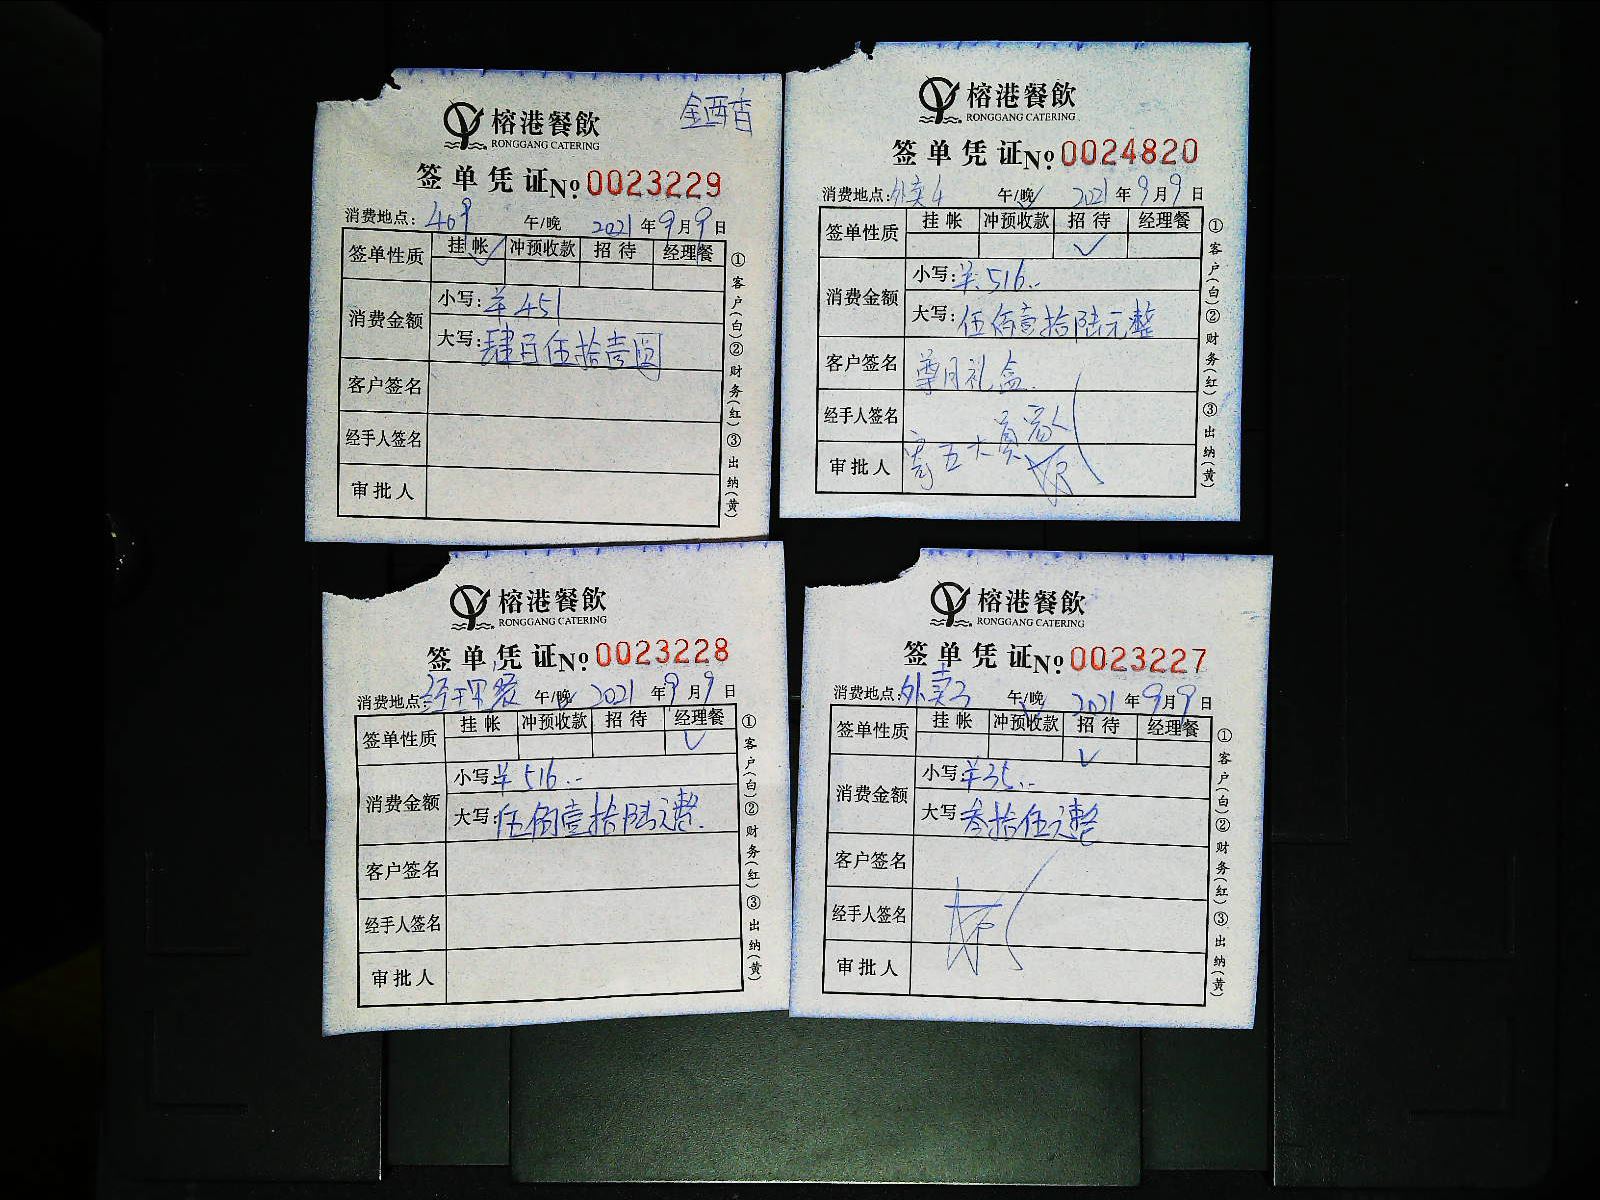 榕港餐飲
RONGGANG CATERING
金西香
签单凭证No 0023229
消费地点: 409 午/晚 2021年9月9日
签单性质 挂帐 冲预收款 招待 经理餐
✓
消费金额 小写: ¥451
大写: 肆百伍拾壹圆
客户签名
经手人签名
审批人
①客户(白)②财务(红)③出纳(黄)
榕港餐飲
RONGGANG CATERING
签单凭证No 0024820
消费地点: 外卖4 午/晚✓ 2021年9月9日
签单性质 挂帐 冲预收款 招待 经理餐
✓
消费金额 小写: ¥516..
大写: 伍佰壹拾陆元整
客户签名 尊月礼盒.
经手人签名
审批人 寄五大员
①客户(白)②财务(红)③出纳(黄)
榕港餐飲
RONGGANG CATERING
签单凭证No 0023228
消费地点 经理餐 午/晚✓ 2021年9月9日
签单性质 挂帐 冲预收款 招待 经理餐
✓
消费金额 小写 ¥516..
大写: 伍佰壹拾陆元整.
客户签名
经手人签名
审批人
①客户(白)②财务(红)③出纳(黄)
榕港餐飲
RONGGANG CATERING
签单凭证No 0023227
消费地点: 外卖3 午/晚✓ 2021年9月9日
签单性质 挂帐 冲预收款 招待 经理餐
✓
消费金额 小写 ¥35..
大写 叁拾伍元整
客户签名
经手人签名
审批人
①客户(白)②财务(红)③出纳(黄)